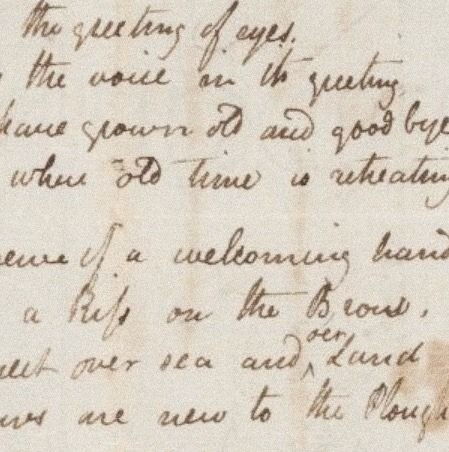 the greeting of eyes.
the voice in its greeting
have grown old and good bye
when old time is retreating
of a welcoming hand
a Kiss on the Brow.
over sea and over Land
are new to the Plough